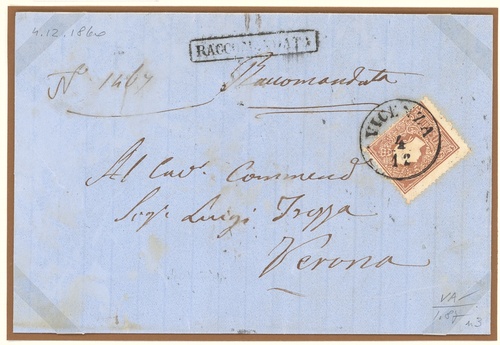 4.12.1860
RACCOMANDATA
N° 1467
Raccomandata
VICENZA
4
12
Al Cavr. Commend
Sigr Luigi Trezza
Verona
VA
n3